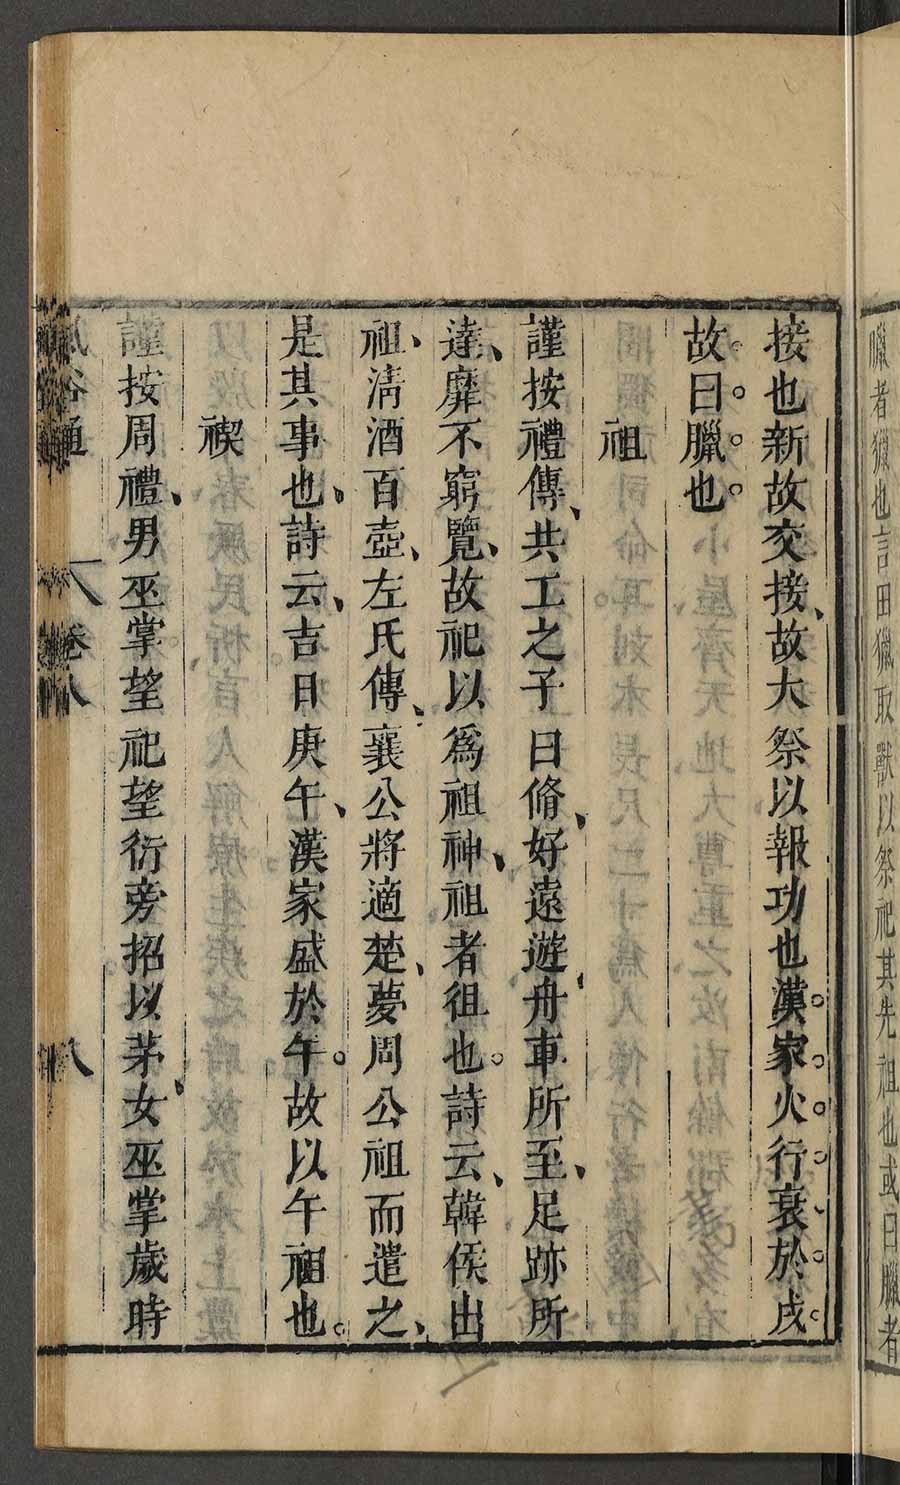 臘者獵也言田獵取獸以祭祀其先祖也或曰臘者
接也新故交接、故大祭以報功也漢家火行衰於戌
故曰臘也。
祖
謹按禮傳、共工之子曰脩、好遠遊、舟車所至、足跡所
達、靡不窮覽、故祀以爲祖神、祖者徂也。詩云、韓侯出
祖、清酒百壺、左氏傳、襄公將適楚、夢周公祖而遣之、
是其事也、詩云、吉日庚午、漢家盛於午。故以午祖也。
禊
謹按周禮、男巫掌望祀望衍旁招以茅、女巫掌歲時
風俗通 卷八 八